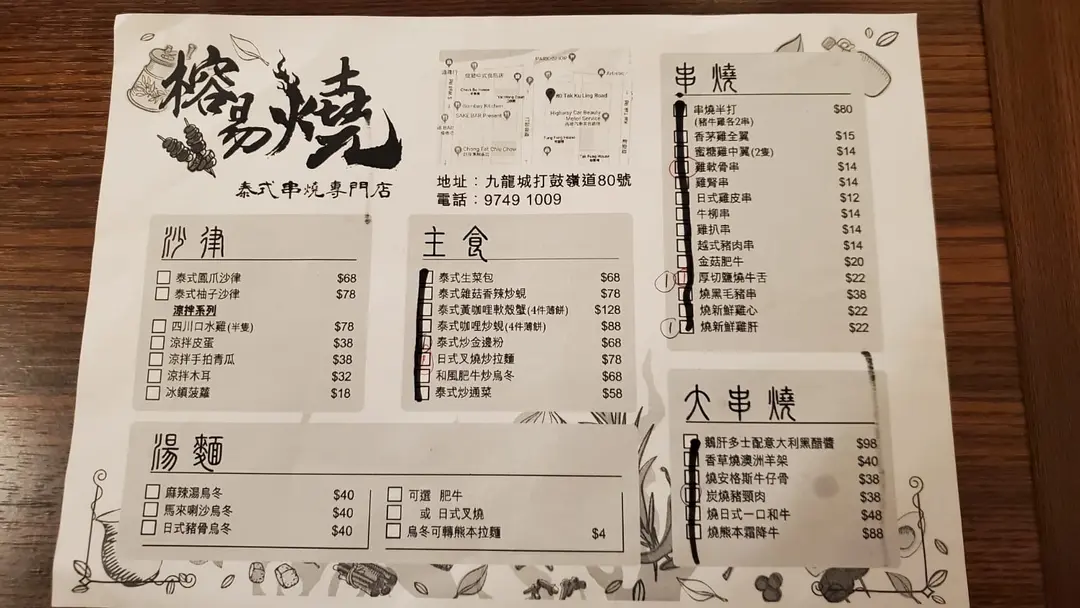 榕易燒
泰式串燒專門店
80 Tak Ku Ling Road
Highway Car Beauty
Motel Service
SAKE BAR Present
Chong Tat Chiu Chow
地址：九龍城打鼓嶺道80號
電話：9749 1009
沙律
泰式鳳爪沙律 $68
泰式柚子沙律 $78
涼拌系列
四川口水雞(半隻) $78
涼拌皮蛋 $38
涼拌手拍青瓜 $38
涼拌木耳 $32
冰鎮菠蘿 $18
主食
泰式生菜包 $68
泰式雜菇香辣炒蜆 $78
泰式黃咖哩軟殼蟹(4件薄餅) $128
泰式咖哩炒蜆(4件薄餅) $88
泰式炒金邊粉 $68
日式叉燒炒拉麵 $78
和風肥牛炒烏冬 $68
泰式炒通菜 $58
湯麵
麻辣湯烏冬 $40
馬來喇沙烏冬 $40
日式豬骨烏冬 $40
可選 肥牛
或 日式叉燒
烏冬可轉熊本拉麵 $4
串燒
串燒半打 $80
(豬牛雞各2串)
香茅雞全翼 $15
蜜糖雞中翼(2隻) $14
雞軟骨串 $14
雞腎串 $14
日式雞皮串 $12
牛柳串 $14
雞扒串 $14
越式豬肉串 $14
金菇肥牛 $20
1 厚切鹽燒牛舌 $22
燒黑毛豬串 $38
燒新鮮雞心 $22
1 燒新鮮雞肝 $22
大串燒
鵝肝多士配意大利黑醋醬 $98
香草燒澳洲羊架 $40
燒安格斯牛仔骨 $38
炭燒豬頸肉 $38
燒日式一口和牛 $48
燒熊本霜降牛 $88